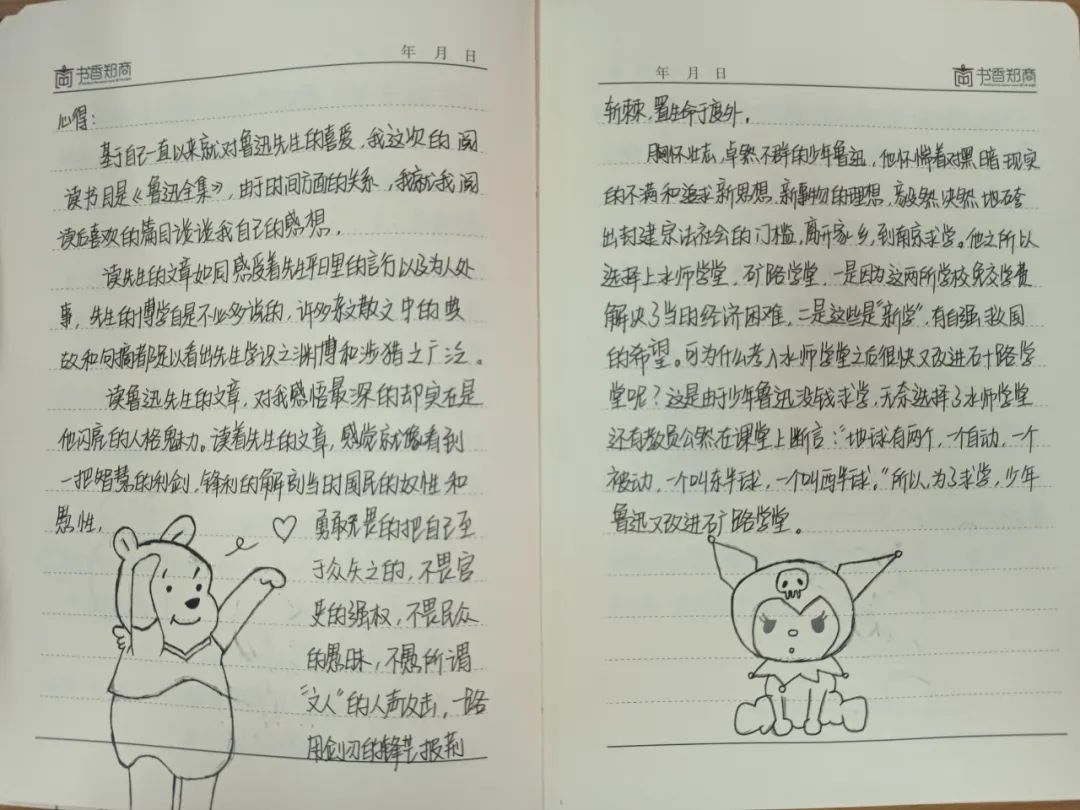 年 月 日
书香郑商
心得：
基于自己一直以来就对鲁迅先生的喜爱，我这次的阅
读书目是《鲁迅全集》，由于时间方面的关系，我就我阅
读后喜欢的篇目谈谈我自己的感想。
读先生的文章如同感受着先生平日里的言行以及为人处
事，先生的博学自是不必多说的，许多杂文散文中的典
故和句摘都足以看出先生学识之渊博和涉猎之广泛。
读鲁迅先生的文章，对我感悟最深的却实在是
他闪亮的人格魅力。读着先生的文章，感觉就像看到
一把智慧的利剑，锋利的解剖当时国民的奴性和
愚性，
勇敢无畏的把自己至
于众矢之的，不畏官
吏的强权，不畏民众
的愚昧，不愚所谓
“文人”的人声攻击，一路
用剑刃的锋芒报荆
年 月 日
书香郑商
斩棘，置生命于度外。
胸怀壮志，卓然不群的少年鲁迅，他怀惴着对黑暗现实
的不满和追求新思想，新事物的理想，毅然决然地砖
出封建宗法社会的门槛，离开家乡，到南京求学。他之所以
选择上水师学堂，矿路学堂，一是因为这两所学校免交学费
解决了当时经济困难，二是这些是“新学”，有自强救国
的希望。可为什么考入水师学堂之后很快又改进石十路学
堂呢？这是由于少年鲁迅没钱求学，无奈选择了水师学堂
还有教员公然在课堂上断言：“地球有两个，一个自动，一个
被动，一个叫东半球，一个叫西半球。”所以，为了求学，少年
鲁迅又改进矿路学堂。